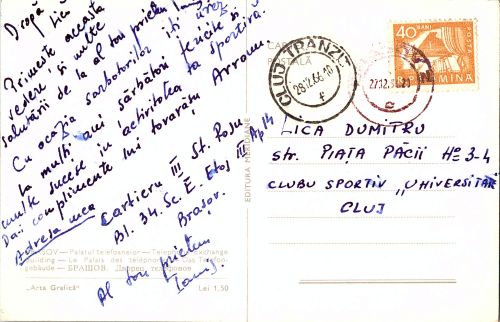 Dragă
Lica
Primește aceasta
vedere și multe
salutări de la al tou prieten
Cu ocazia sarbotorilor iti urez
la mulți ani sărbători fericite și
multe sucese in activitatea ta sportivă.
Dai complimente lui tovarăș
Adresa mea Cartieru III St. Roșu
Bl. 34. Sc. E. Etaj III Ap 14
Brașov.
Al tou prieten
BRAȘOV — Palatul telefoanelor — Telephone Exchange
Building — Le Palais des téléphones — Das Telefon-
gebäude — БРАШОВ. Дворец телефонов
„Arta Grafică"
Lei 1,50
EDITURA MERIDIANE
CLUJ TRANZIT
28.12.66.10
40 BANI
POSTA
ROMINA
LICA DUMITRU
str. PIAȚA PĂCII No 3-4
CLUBU SPORTIV „UNIVERSITAR"
CLUJ